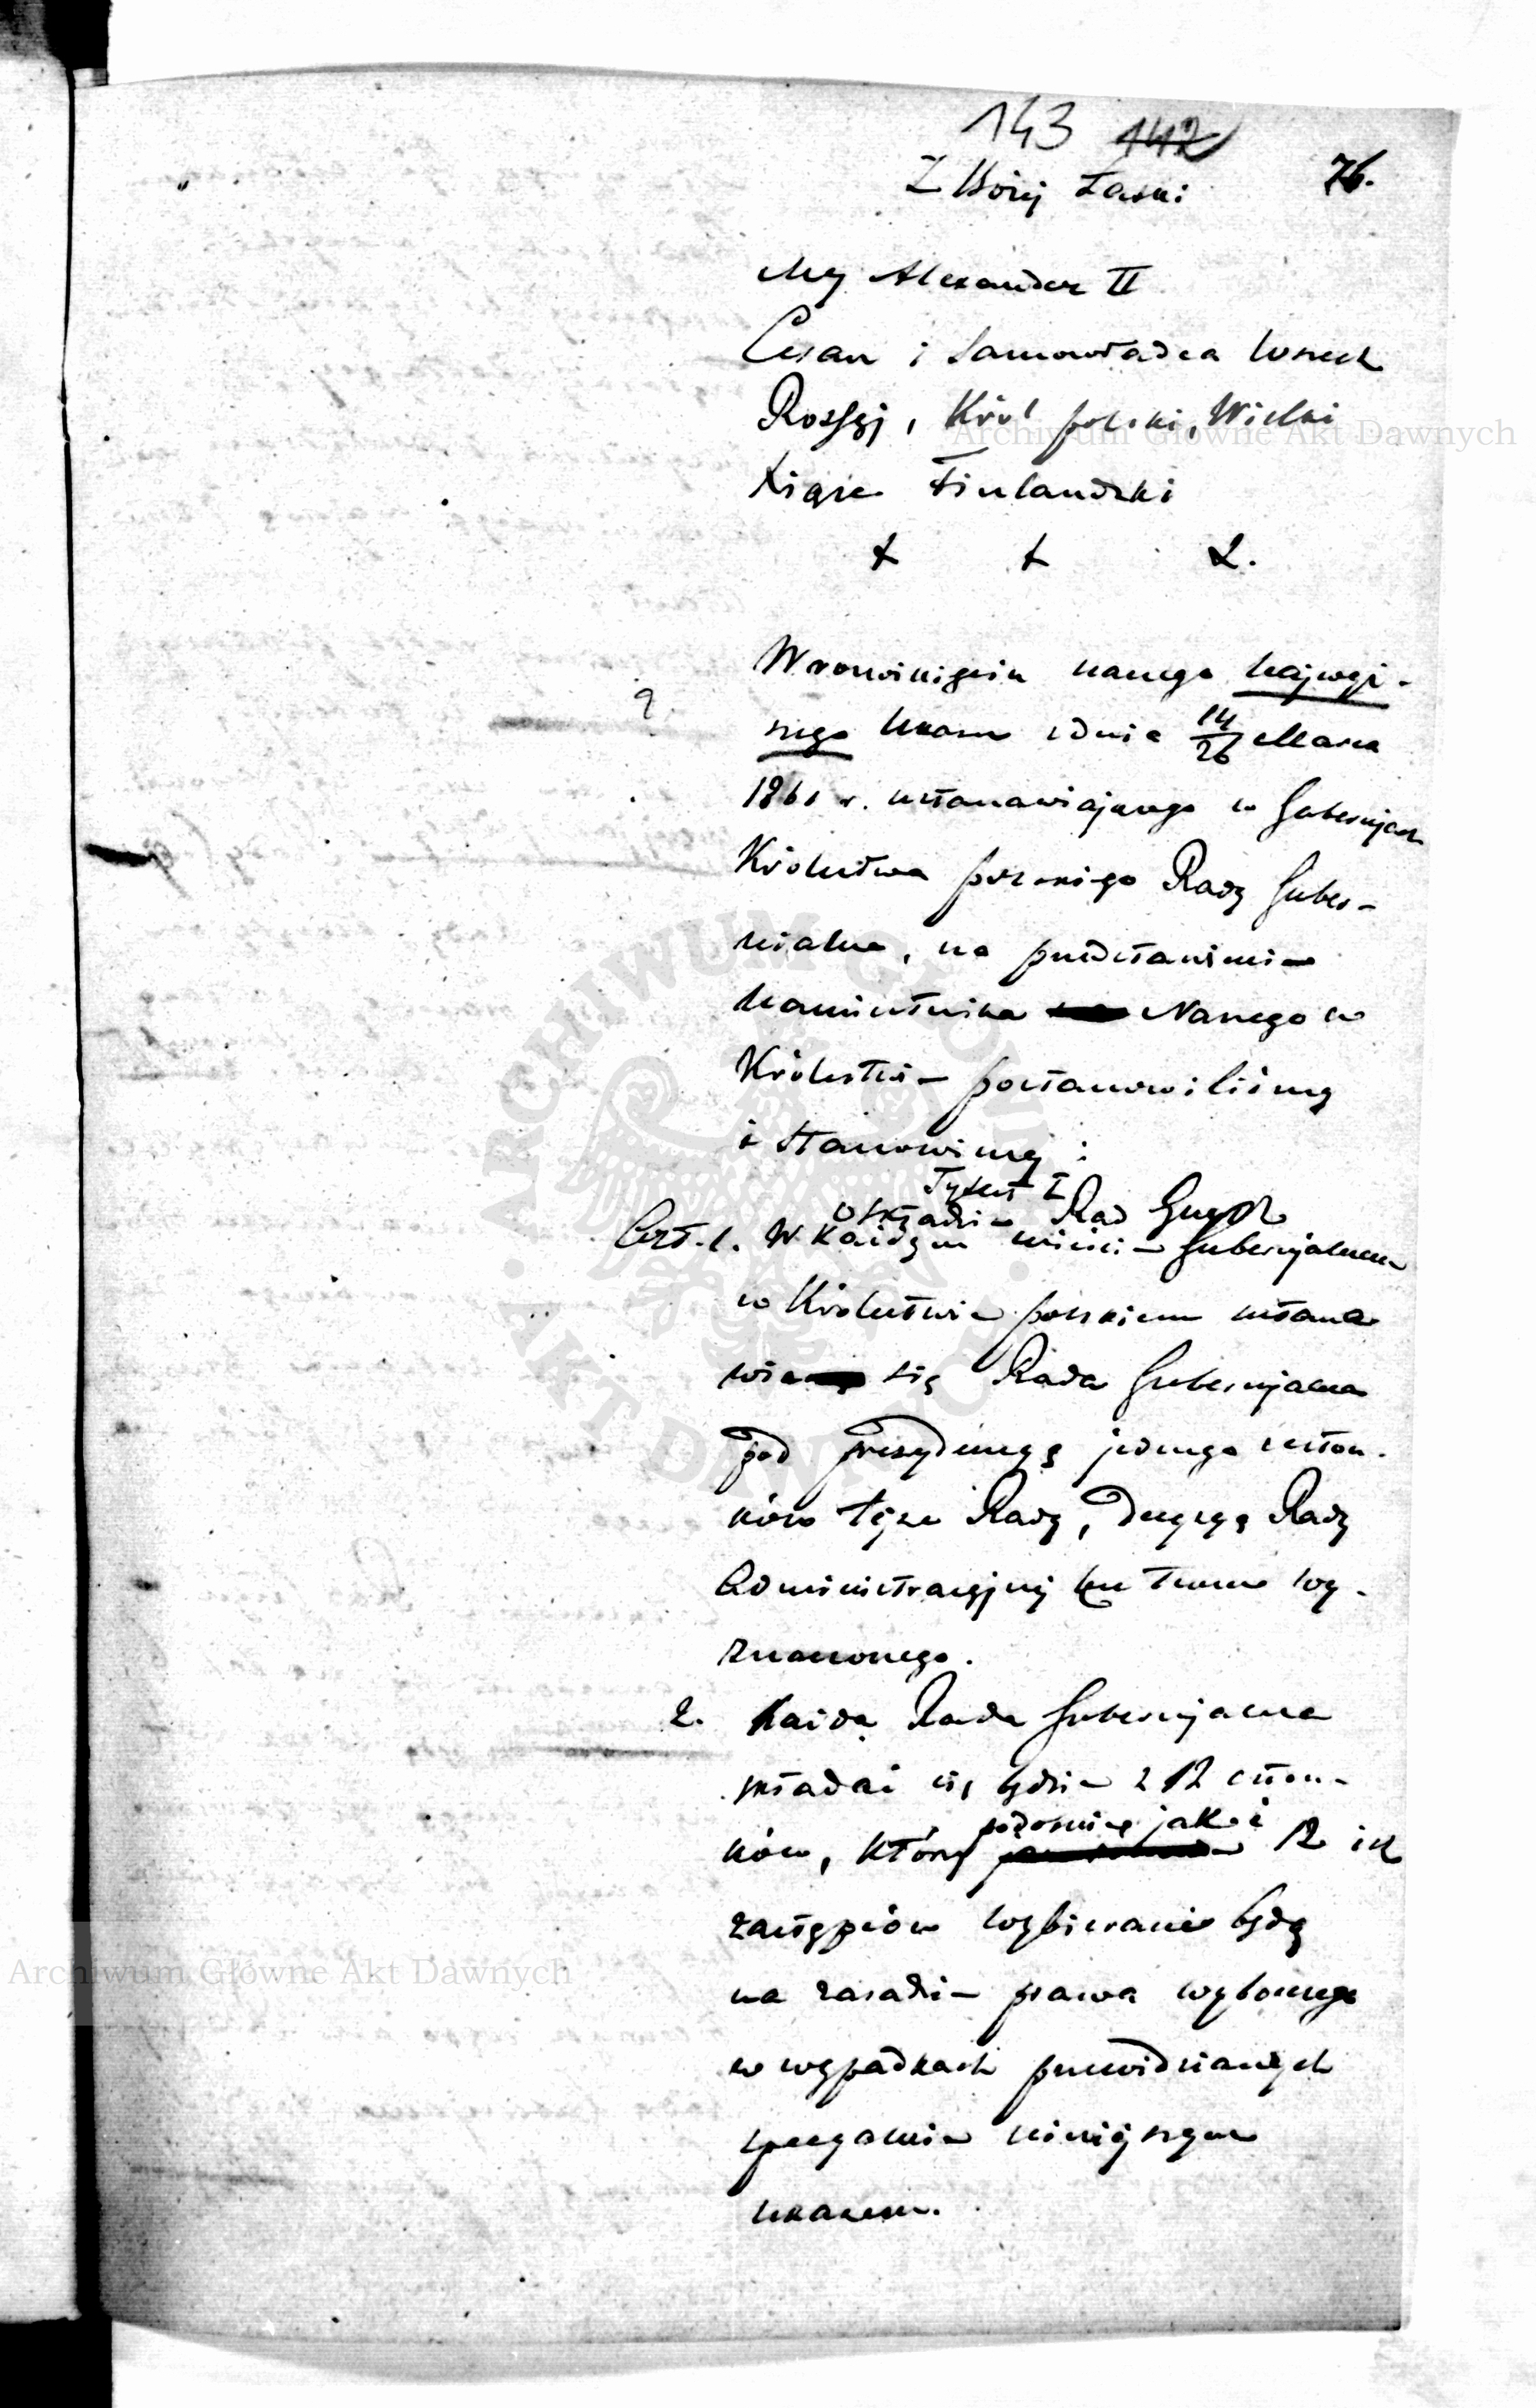 143 142
Z Bożej Łaski 76.
My Alexander II
Cesarz i Samowładca wszech
Rossyj, Król polski, Wielki
Xiąże Finlandzki
& & &.
W rozwinięciu naszego Najwyż-
? szego Ukazu z dnia 14/26 Marca
1861 r. ustanawiającego w Gubernjach
Królestwa polskiego Rady Guber-
nialne, na przedstawienie
Namiestnika Naszego w
Królestwie postanowiliśmy
i stanowimy:
Tytuł I
O składzie Rad Gubch
Art. 1. W każdym mieście Gubernjalnem
w Królestwie polskiem ustana-
wia się Rada Gubernjalna
pod prezydencyą jednego z człon-
ków tejże Rady, decyzyą Rady
Administracyjnej ku temu wy-
znaczonego.
2. Każda Rada Gubernjalna
składać się będzie z 12 człon-
ków, którzy podobnie jak i 12 ich
zastępców wybierani będą
na zasadzie prawa wyborczego
w wypadkach przewidzianych
specyalnie niniejszym
ukazem.
Archiwum Główne Akt Dawnych
Archiwum Główne Akt Dawnych
ARCHIWUM GŁÓWNE
AKT DAWNYCH